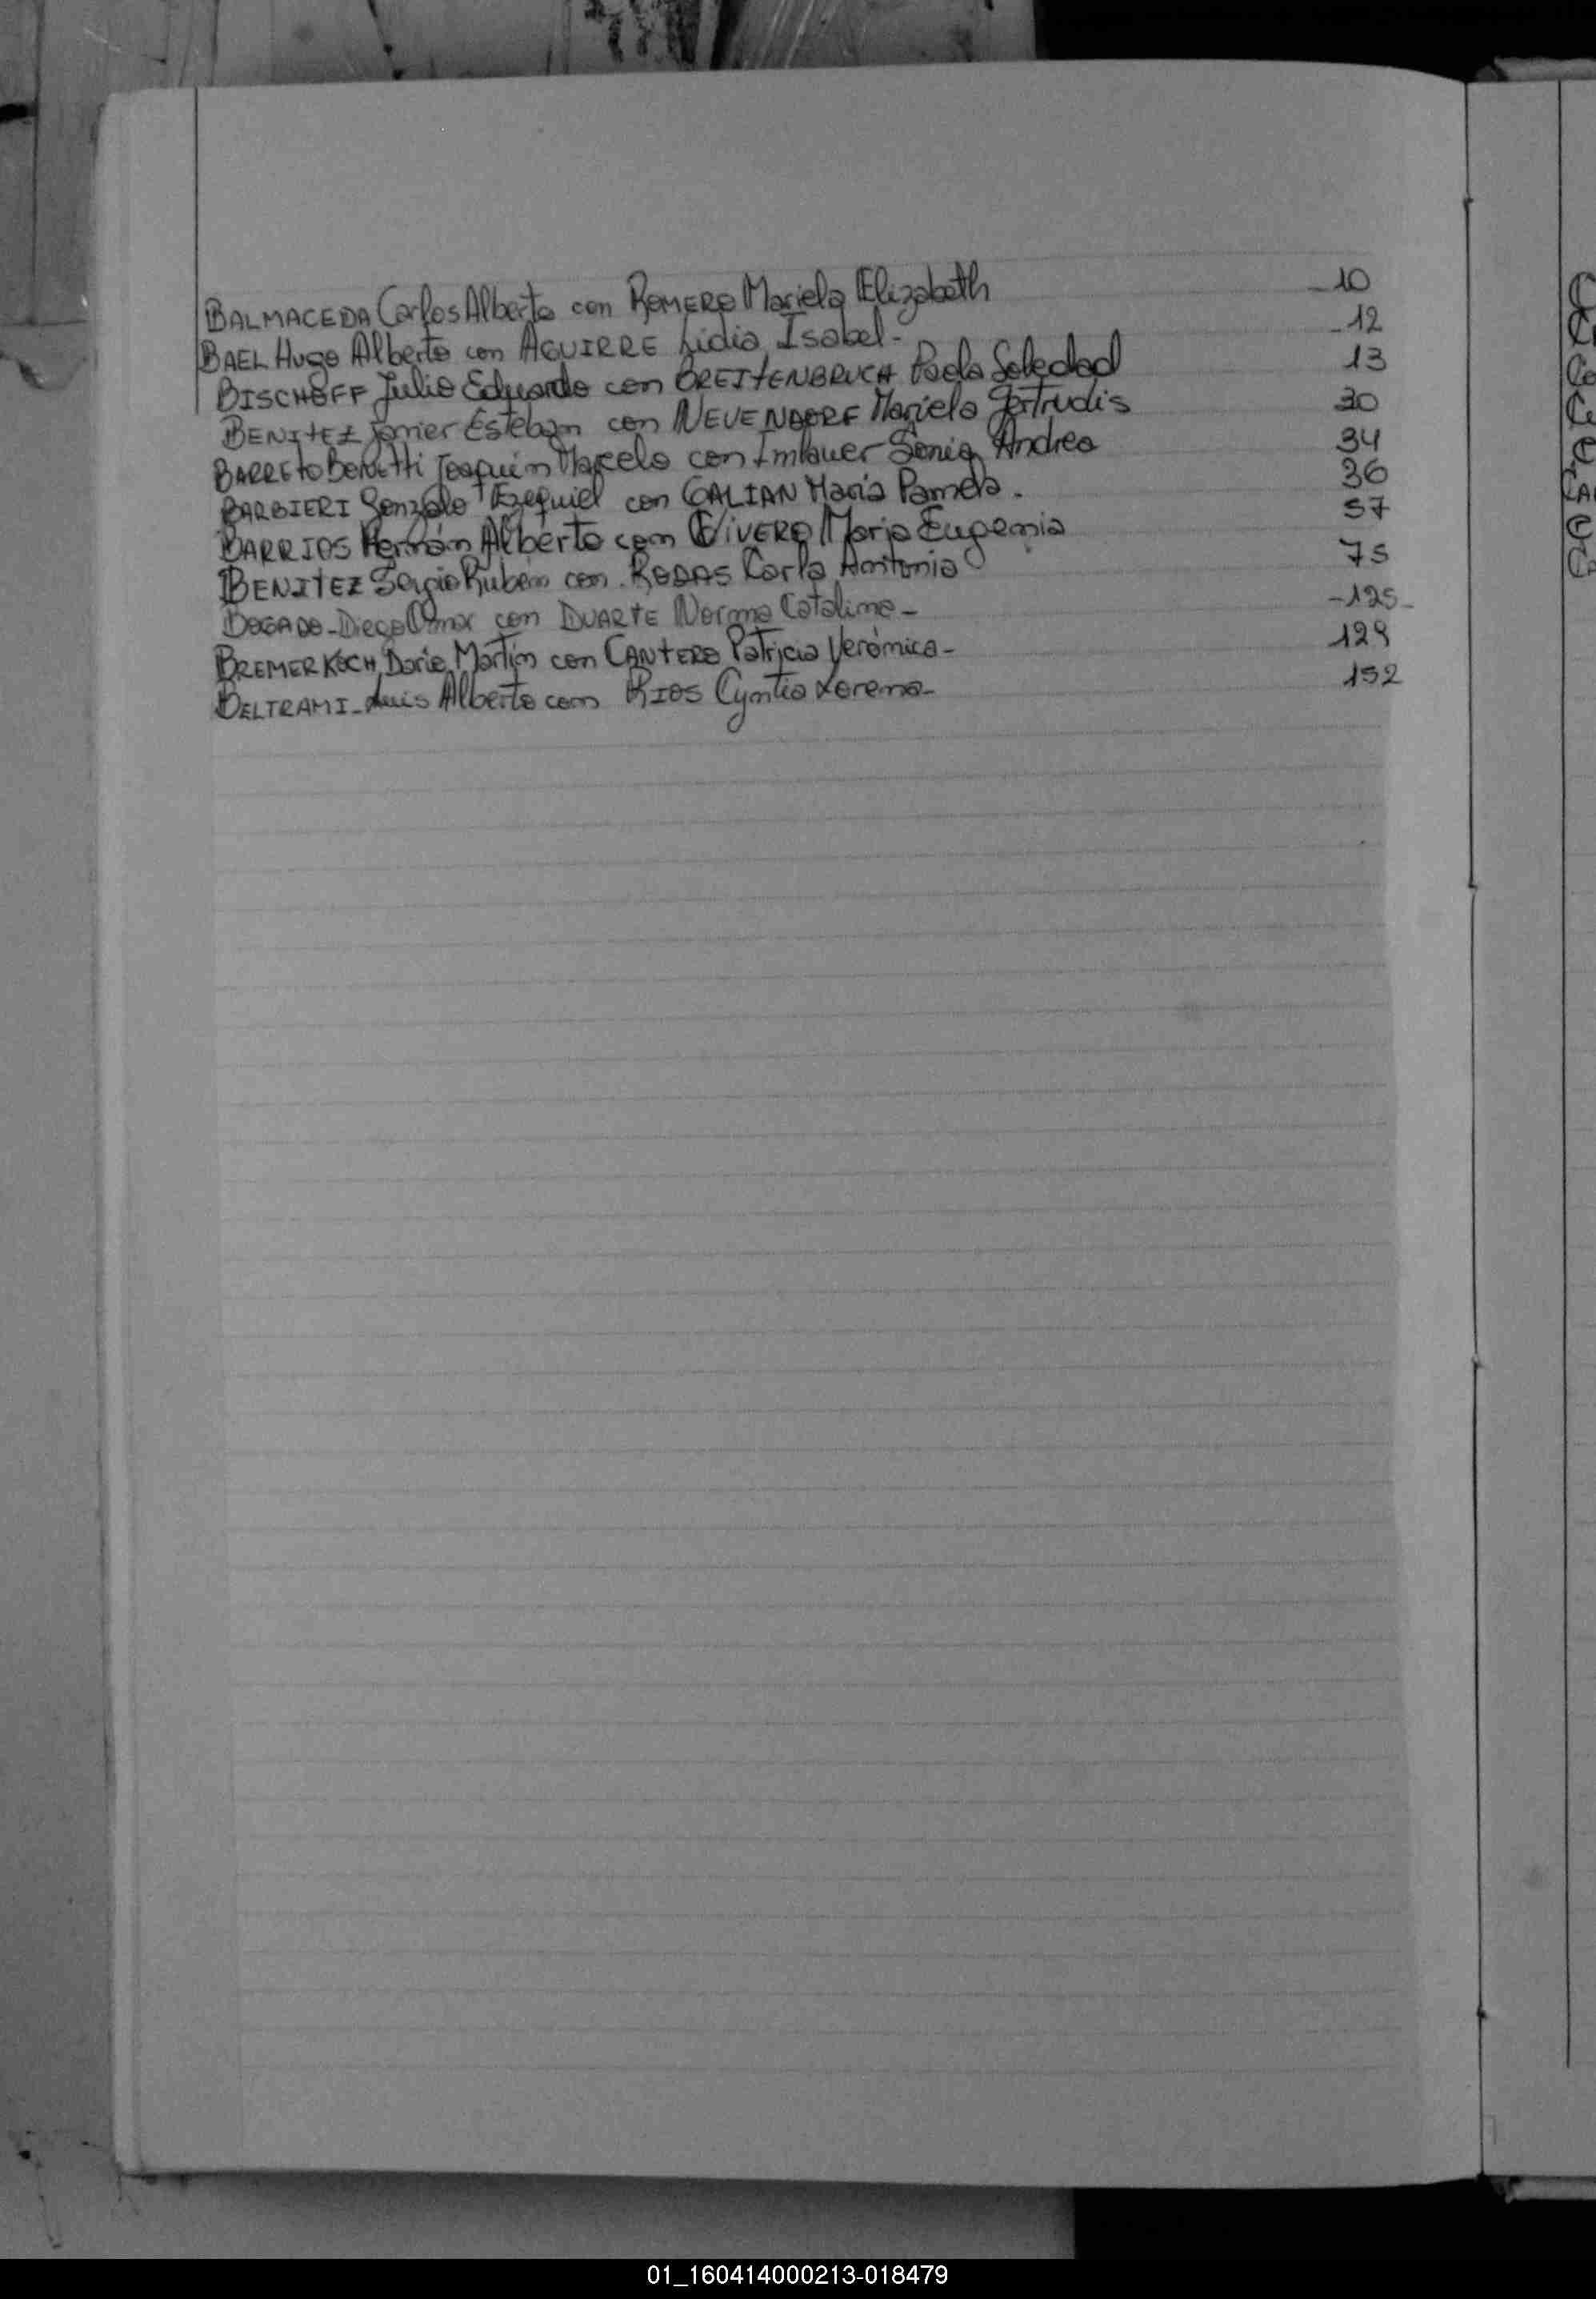 BALMACEDA Carlos Alberto con ROMERO Mariela Elizabeth _10
BAEL Hugo Alberto con AGUIRRE Lidia Isabel - -12
BISCHOFF Julio Eduardo con BREITENBRUCH Paola Soledad 13
BENITEZ Javier Esteban con NEUENDORF Mariela Gertrudis 30
BARRETO Benetti Joaquín Marcelo con Imlauer Sonia Andrea 34
BARBIERI Gonzalo Ezequiel con GALIAN María Pamela. 36
BARRIOS Hernán Alberto con VIVERO María Eugenia 57
BENITEZ Sergio Rubén con RODAS Carla Antonia 75
BOGADO - Diego Omar con DUARTE Norma Catalina - -125-
BREMER KOCH, Dario Martín con CANTERO Patricia Verónica - 129
BELTRAMI - Luis Alberto con RIOS Cyntia Lorena - 152
01_160414000213-018479